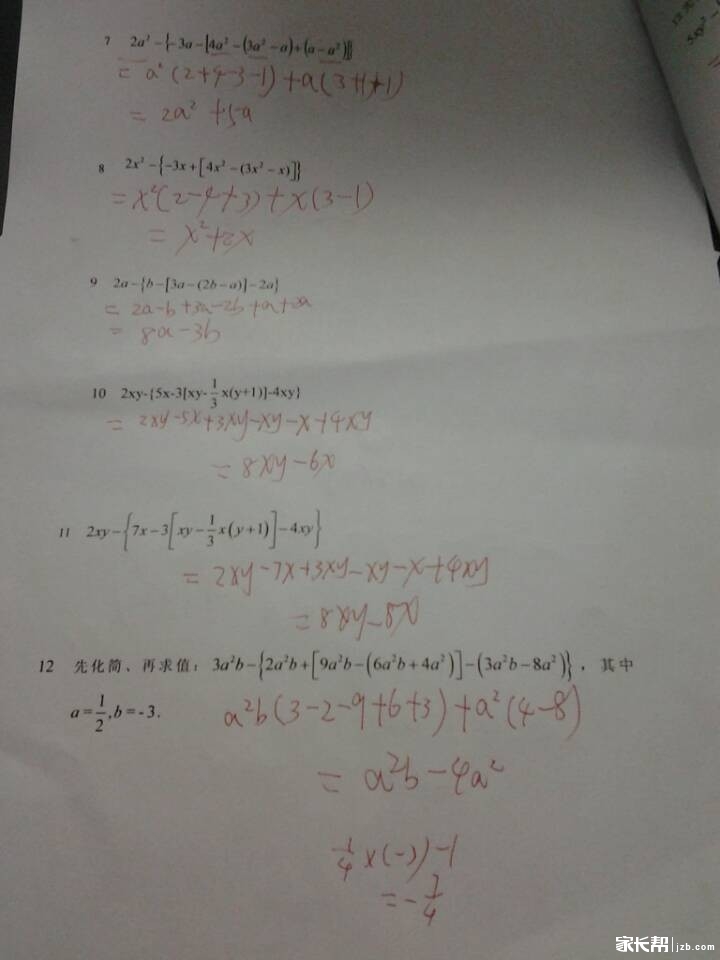 7 2a² - {-3a - [4a² - (3a² - a) + (a - a²)]}
= a²(2+4-3-1) + a(3+1+1)
= 2a² + 5a
8 2x² - {-3x + [4x² - (3x² - x)]}
= x²(2-4+3) + x(3-1)
= x² + 2x
9 2a - {b - [3a - (2b - a)] - 2a}
= 2a - b + 3a - 2b + a + 2a
= 8a - 3b
10 2xy-{5x-3[xy-1/3x(y+1)]-4xy}
= 2xy - 5x + 3xy - xy - x + 4xy
= 8xy - 6x
11 2xy - {7x - 3[xy - 1/3x(y+1)] - 4xy}
= 2xy - 7x + 3xy - xy - x + 4xy
= 8xy - 8x
12 先化简、再求值：3a²b - {2a²b + [9a²b - (6a²b + 4a²)] - (3a²b - 8a²)}，其中
a = 1/2, b = -3.
a²b(3-2-9+6+3) + a²(4-8)
= a²b - 4a²
1/4 × (-3) - 1
= -7/4
家长帮 jzb.com